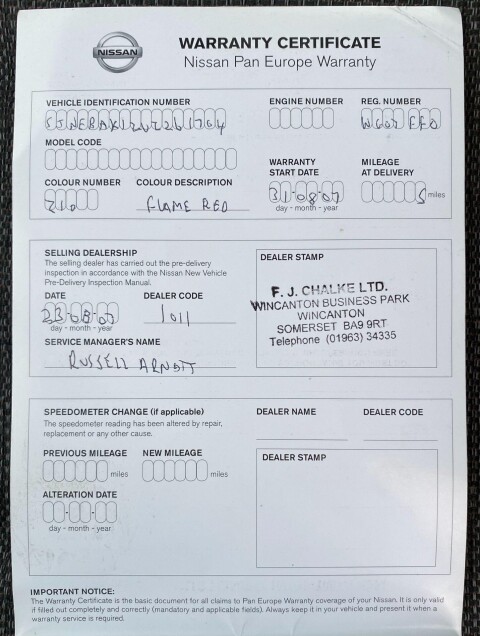 NISSAN
WARRANTY CERTIFICATE
Nissan Pan Europe Warranty
VEHICLE IDENTIFICATION NUMBER
ENGINE NUMBER
REG. NUMBER
MODEL CODE
WARRANTY START DATE
31-08-07
day - month - year
MILEAGE AT DELIVERY
5 miles
COLOUR NUMBER
COLOUR DESCRIPTION
FLAME RED
SELLING DEALERSHIP
The selling dealer has carried out the pre-delivery
inspection in accordance with the Nissan New Vehicle
Pre-Delivery Inspection Manual.
DATE
day - month - year
DEALER CODE
1011
SERVICE MANAGER'S NAME
RUSSELL
DEALER STAMP
F. J. CHALKE LTD.
WINCANTON BUSINESS PARK
WINCANTON
SOMERSET BA9 9RT
Telephone (01963) 34335
SPEEDOMETER CHANGE (if applicable)
The speedometer reading has been altered by repair,
replacement or any other cause.
DEALER NAME
DEALER CODE
PREVIOUS MILEAGE
miles
NEW MILEAGE
miles
ALTERATION DATE
day - month - year
DEALER STAMP
IMPORTANT NOTICE:
The Warranty Certificate is the basic document for all claims to Pan Europe Warranty coverage of your Nissan. It is only valid
if filled out completely and correctly (mandatory and applicable fields). Always keep it in your vehicle and present it when a
warranty service is required.